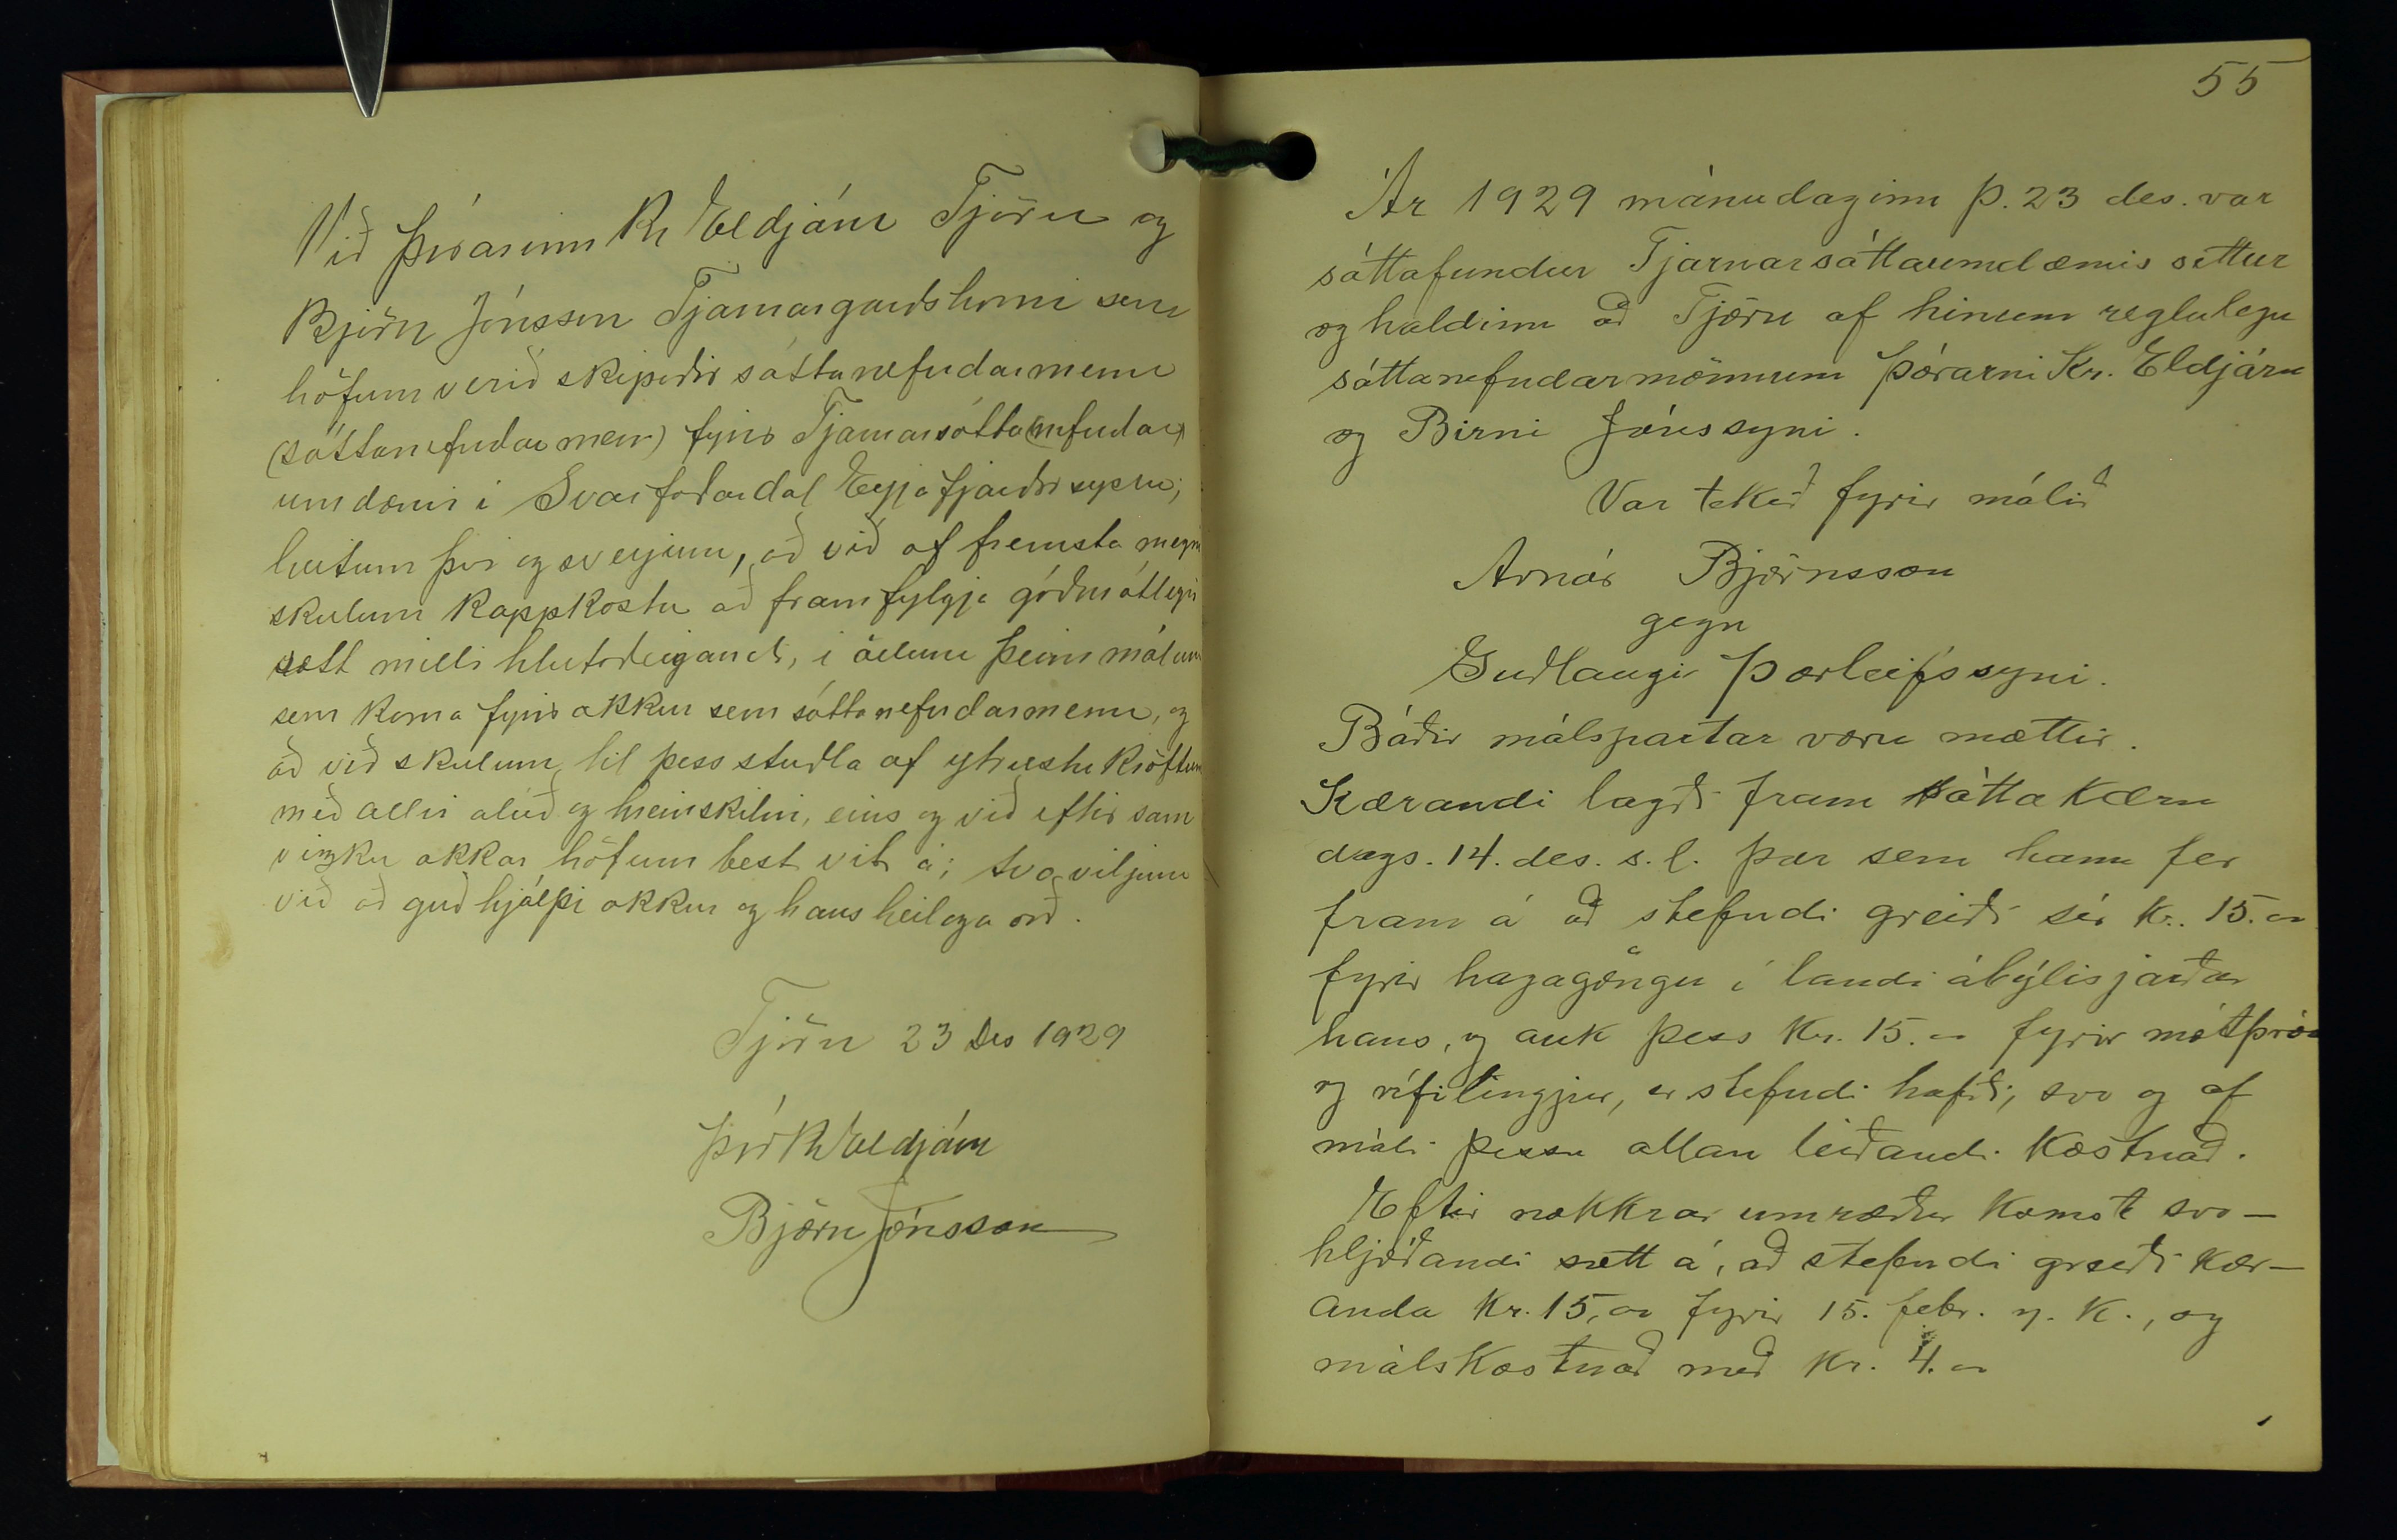 Við Þórarinn Kr Eldjárn Tjörn og
Björn Jónsson Tjarnargarðshorni sem
höfum verið skipaðir sáttanefndarmenn
(sáttanefndarmenn) fyrir Tjarnarsátta(nefndar)
umdæmi í Svarfaðardal Eyjafjarðarsýslu;
heitum því og sverjum, að við af fremsta megni
skulum kappkosta að framfylgja góðmótlegri
sætt milli hlutaðeiganda, í öllum þeim málum
sem koma fyrir okkur sem sáttanefndarmenn, og
að við skulum til þess stuðla af ýtrustu kröftum
með allri alúð og hreinskilni, eins og við eftir sam
vizku okkar höfum best vit á; svo viljum
við að guð hjálpi okkur og hans heilaga orð.
Tjörn 23 Des 1929
Þór Kr Eldjárn
Björn Jónsson
55
Ár 1929 mánudaginn þ. 23 des. var
sáttafundur Tjarnarsáttaumdæmis settur
og haldinn að Tjörn af hinum reglulegu
sáttanefndarmönnum Þórarni Kr. Eldjárn
og Birni Jónssyni.
Var tekið fyrir málið
Arnór Björnsson
gegn
Guðlaugi Þorleifssyni.
Báðir málspartar voru mættir.
Kærandi lagði fram sáttakæru
dags. 14. des. s.l. þar sem hann fer
fram á að stefndi greiði sér kr. 15.00
fyrir hagagöngu í landi ábýlisjarðar
hans, og auk þess kr. 15.00 fyrir mótþróa
og vífilengjur, er stefndi hafði, svo og af
máli þessu allan leiðandi kostnað.
Eftir nokkrar umræður komst svo-
hljóðandi sætt á, að stefndi greiði kær-
anda kr. 15,00 fyrir 15. febr. n. k., og
málskostnað með kr. 4.00